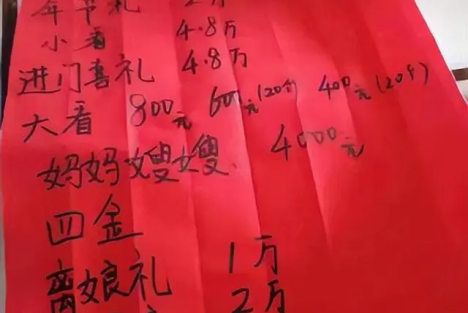 年节礼 2万
小看 4.8万
进门喜礼 4.8万
大看 800元 600元(20个) 400元(20个)
妈妈嫂嫂. 4000元
四金
离娘礼 1万
2万